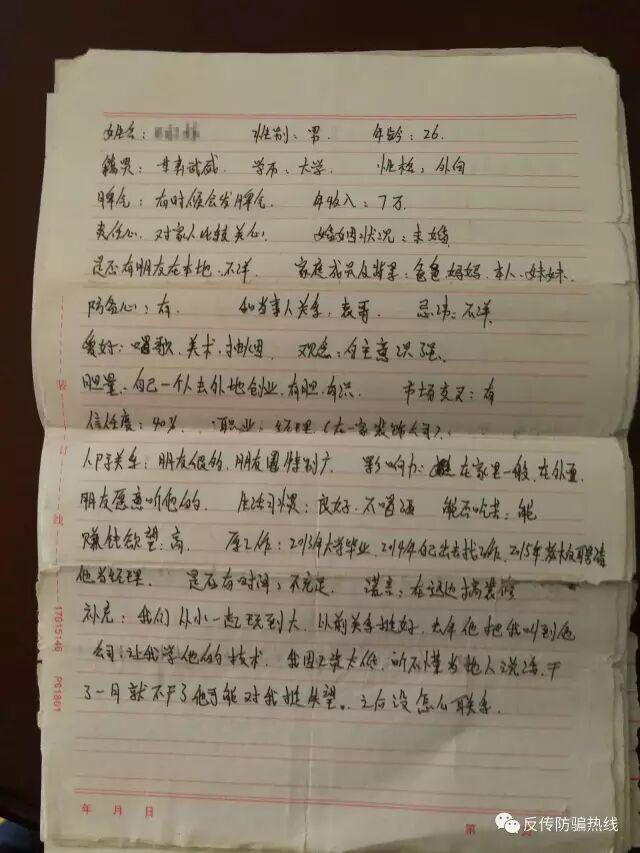 姓名： 性别：男. 年龄：26.
籍贯：甘肃武威. 学历：大学. 性格：外向
脾气：有时候会发脾气. 年收入：7万.
责任心：对家人比较关心. 婚姻状况：未婚
是否有朋友在本地：不详. 家庭成员及背景：爸爸.妈妈.本人.妹妹.
防备心：有. 和当事人关系：表哥. 忌讳：不详.
爱好：唱歌.美术.抽烟. 观念：自主意识强.
胆量：自己一个人去外地创业.有胆.有识. 市场交叉：有
信任度：40%. 职业：经理（在一家装饰公司）.
人际关系：朋友很多.朋友圈特别广. 影响力： 在家里一般.在外面
朋友愿意听他的. 生活习惯：良好.不喝酒 能否吃苦：能
赚钱欲望：高. 原工作：2013年大学毕业.2014年自己出去找工作.2015年 请
他当经理. 是否有时间：不充足. 谎言：在这边搞装修
补充：我们从小一起玩到大.以前关系挺好.去年他把我叫到他
公司：让我学他的技术.我因工资太低.听不懂当地人说话.干
了一月就不干了他可能对我挺失望。之后没怎么联系.
装
订
线
17015146 PC1801
年 月 日
第 页
反传防骗热线